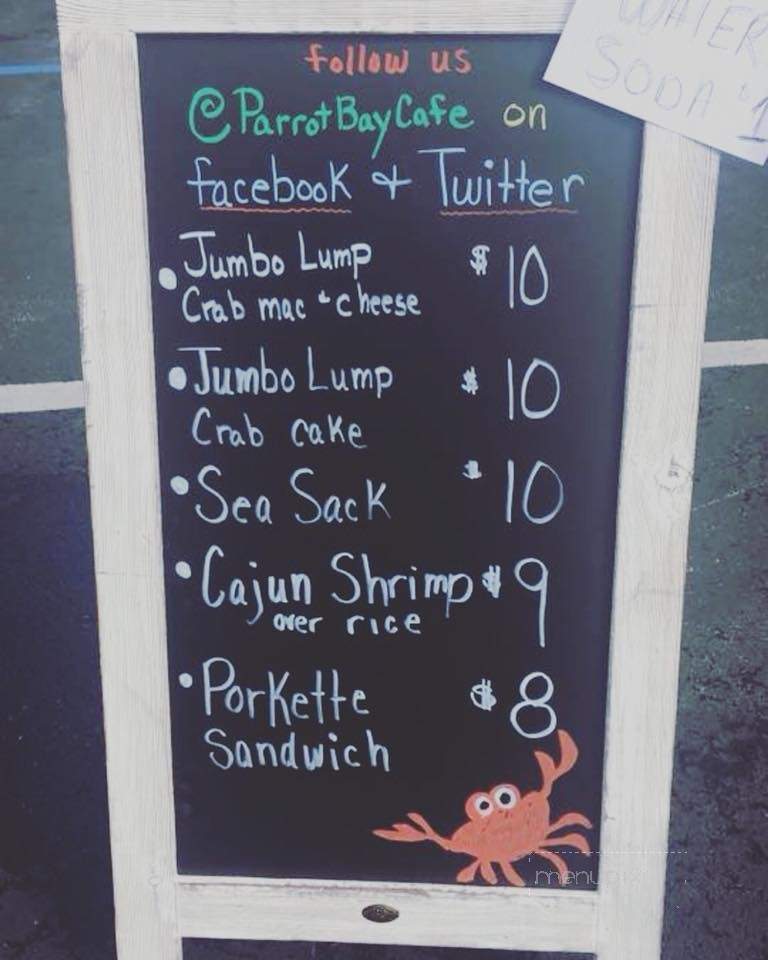 WATER
SODA $1
follow us
@ParrotBayCafe on
facebook & Twitter
• Jumbo Lump $10
Crab mac & cheese
• Jumbo Lump $10
Crab cake
• Sea Sack $10
• Cajun Shrimp $9
over rice
• Porkette $8
Sandwich